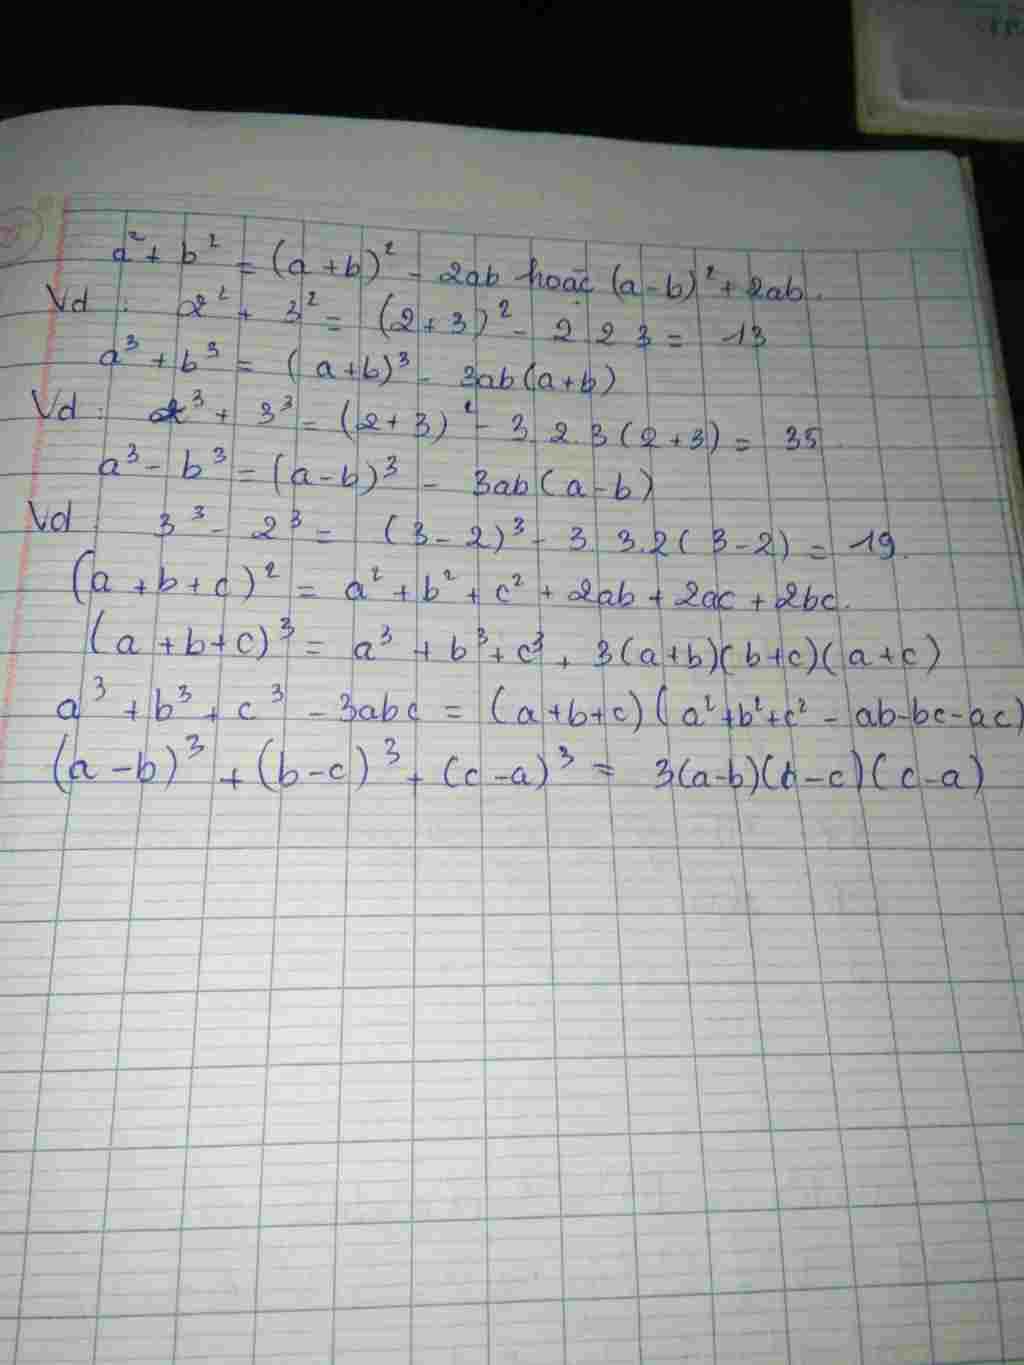 a² + b² = (a + b)² - 2ab hoặc (a - b)² + 2ab.
Vd : 2² + 3² = (2 + 3)² - 2 2 3 = 13
a³ + b³ = (a + b)³ - 3ab(a + b)
Vd : 2³ + 3³ = (2 + 3)² - 3 2. 3 (2 + 3) = 35.
a³ - b³ = (a - b)³ - 3ab (a - b)
Vd : 3³ - 2³ = (3 - 2)³ - 3. 3.2 (3 - 2) = 19.
(a + b + c)² = a² + b² + c² + 2ab + 2ac + 2bc.
(a + b + c)³ = a³ + b³ + c³ + 3(a + b)(b + c)(a + c)
a³ + b³ + c³ - 3abc = (a + b + c) (a² + b² + c² - ab - bc - ac)
(a - b)³ + (b - c)³ + (c - a)³ = 3(a - b)(b - c)(c - a)